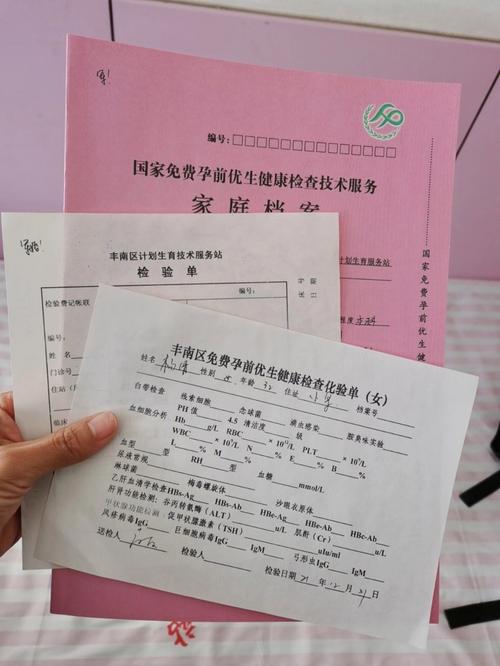 编号:□□□□□□□□□□□□□□
国家免费孕前优生健康检查技术服务
家庭档案
国家免费孕前优生健
计划生育技术服务站
程度 本科
丰南区计划生育技术服务站
检验单
检验费记帐联
编号:
编号:
姓名
门诊号
住站(
临床
床号
日期
丰南区免费孕前优生健康检查化验单(女)
姓名 性别 年龄 32 住址 档案号
白带检查 线索细胞 念球菌 滴虫感染 胺臭味实验
PH值 4.5 清洁度 级
血细胞分析 Hb g/L RBC ×10¹²/L PLT ×10⁹/L
WBC ×10⁹/L N % E % B %
L % M %
血型 RH型 血糖 mmol/L
尿液常规
淋球菌 梅毒螺旋体 沙眼衣原体
乙肝血清学检查HBs-Ag HBs-Ab HBe-Ag HBe-Ab HBc-Ab
肝肾功能检测:谷丙转氨酶(ALT) u/L 肌酐(Cr) u/L
甲状腺功能检测:促甲状腺激素(TSH) uIu/ml
风疹病毒IgG 巨细胞病毒IgG IgM 弓形虫IgG IgM
送检人 检验人 检验日期 21 年 12 月 日